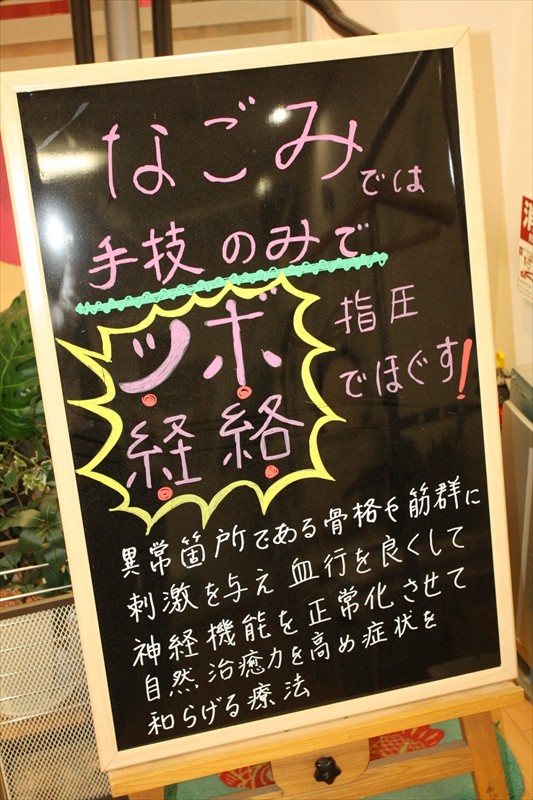 なごみでは
手技のみで
ツボ
経絡
指圧
でほぐす!
異常箇所である骨格や筋群に
刺激を与え 血行を良くして
神経機能を正常化させて
自然治癒力を高め症状を
和らげる療法
消